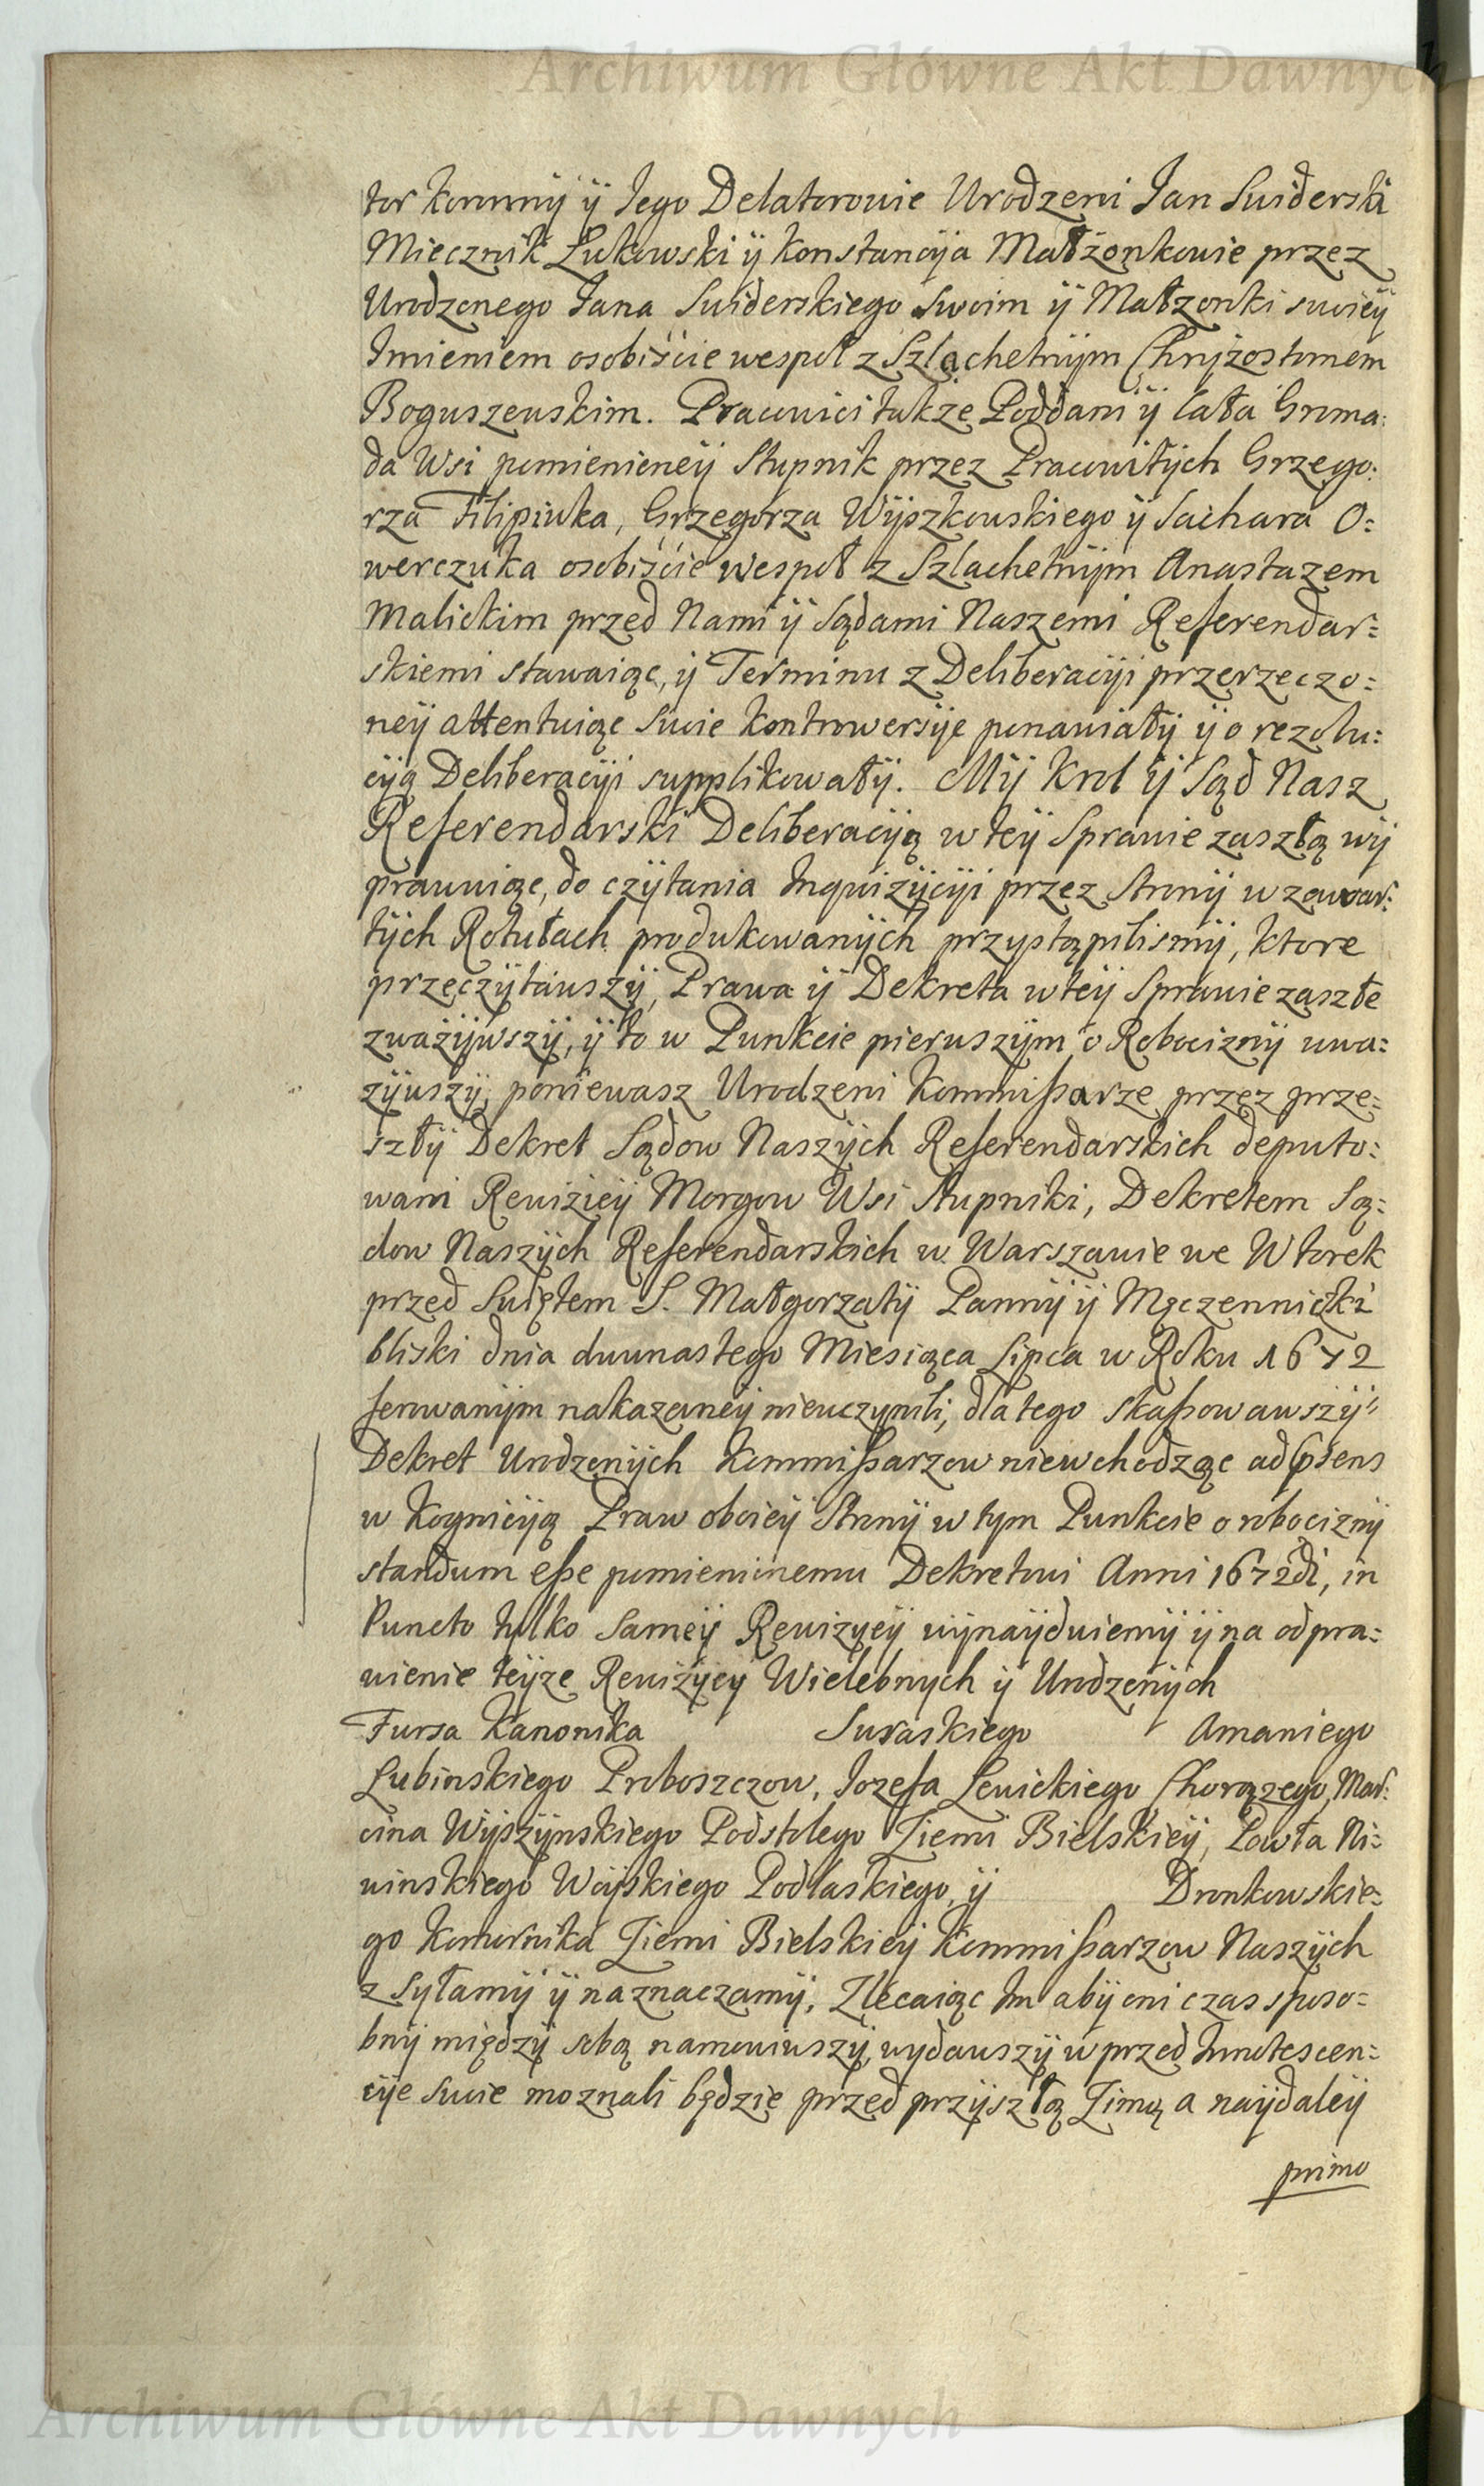 Archiwum Główne Akt Dawnych
tor koronnÿ ÿ Jego Delatorowie Urodzeni Jan Suiderski
Miecznik Łukowski ÿ Konstancÿa Małżonkowie przez
Urodzonego Jana Suiderskiego Swoim ÿ Małzonki swoieÿ
Imieniem osobiście wespoł z Szlachetnÿm Chrÿzostomem
Boguszewskim. Pracowici także Poddani ÿ cała Groma:
da Wsi pomienioneÿ Stupnik przez Pracowitÿch Grzego:
rza Filipiuka, Grzegorza Wÿszkowskiego ÿ Sachara O:
werczuka osobiście wespoł z Szlachetnÿm Anastazem
Malickim przed Nami ÿ Sądami Naszemi Referendar:
skiemi stawaiąc, ÿ Terminu z Deliberacÿi przerzeczo:
neÿ attentuiąc swie kontrowersÿe ponawiałÿ ÿ o rezolu:
cÿą Deliberacÿi supplikowałÿ. Mÿ Krol ÿ Sąd Nasz
Referendarski Deliberacÿą w teÿ Sprawie zaszłą wÿ
prawuiąc, do czÿtania Inquizÿcÿi przez Stronÿ w zawar:
tÿch Rotułach produkowanÿch przystąpilismÿ, ktore
przeczÿtawszÿ, Prawa ÿ Dekreta w teÿ Sprawie zaszłe
zważÿwszÿ, ÿ to w Punkcie pierwszÿm o Robociznÿ uwa:
zÿwszÿ, poniewasz Urodzeni Kommißarze przez prze:
szłÿ Dekret Sądow Naszÿch Referendarskich deputo:
wani Rewizieÿ Morgow Wsi Stupniki, Dekretem Są:
dow Naszÿch Referendarskich w Warszawie we Wtorek
przed Swiętem S. Małgorzatÿ Pannÿ ÿ Męczenniczki
bliski dnia dwunastego Miesiąca Lipca w Roku 1672
ferowanÿm nakazaneÿ nieuczynili, dla tego skaßowawszÿ
Dekret Urodzonÿch Kommißarzow niewchodząc ad psens
w Kognicÿą Praw oboieÿ Stronÿ w tym Punkcie o robociznÿ
standum eße pomienionemu Dekretowi Anni 1672di, in
Puncto tylko sameÿ Rewizyeÿ wÿnaÿduiemÿ ÿ na odpra:
wienie teÿze Rewizÿeÿ Wielebnych ÿ Urodzonÿch
Fursa Kanonika Suraskiego Amaniego
Lubinskiego Proboszczow, Jozefa Lewickiego Chorązego, Mar:
cina Wÿszÿnskiego Podstolego Ziemi Bielskieÿ, Pawła Ni:
winskiego Woÿskiego Podlaskiego, ÿ Dronkowskie:
go Komornika Ziemi Bielskieÿ Kommißarzow Naszÿch
z Syłamÿ ÿ naznaczamÿ, Zlecaiąc Im abÿ oni czas sposo:
bnÿ międzÿ sobą namowiwszÿ, wydawszÿ w przed Innotescen:
cÿe swoie moznali będzie przed przÿszłą Zimą a naÿdaleÿ
primo
Archiwum Główne Akt Dawnych